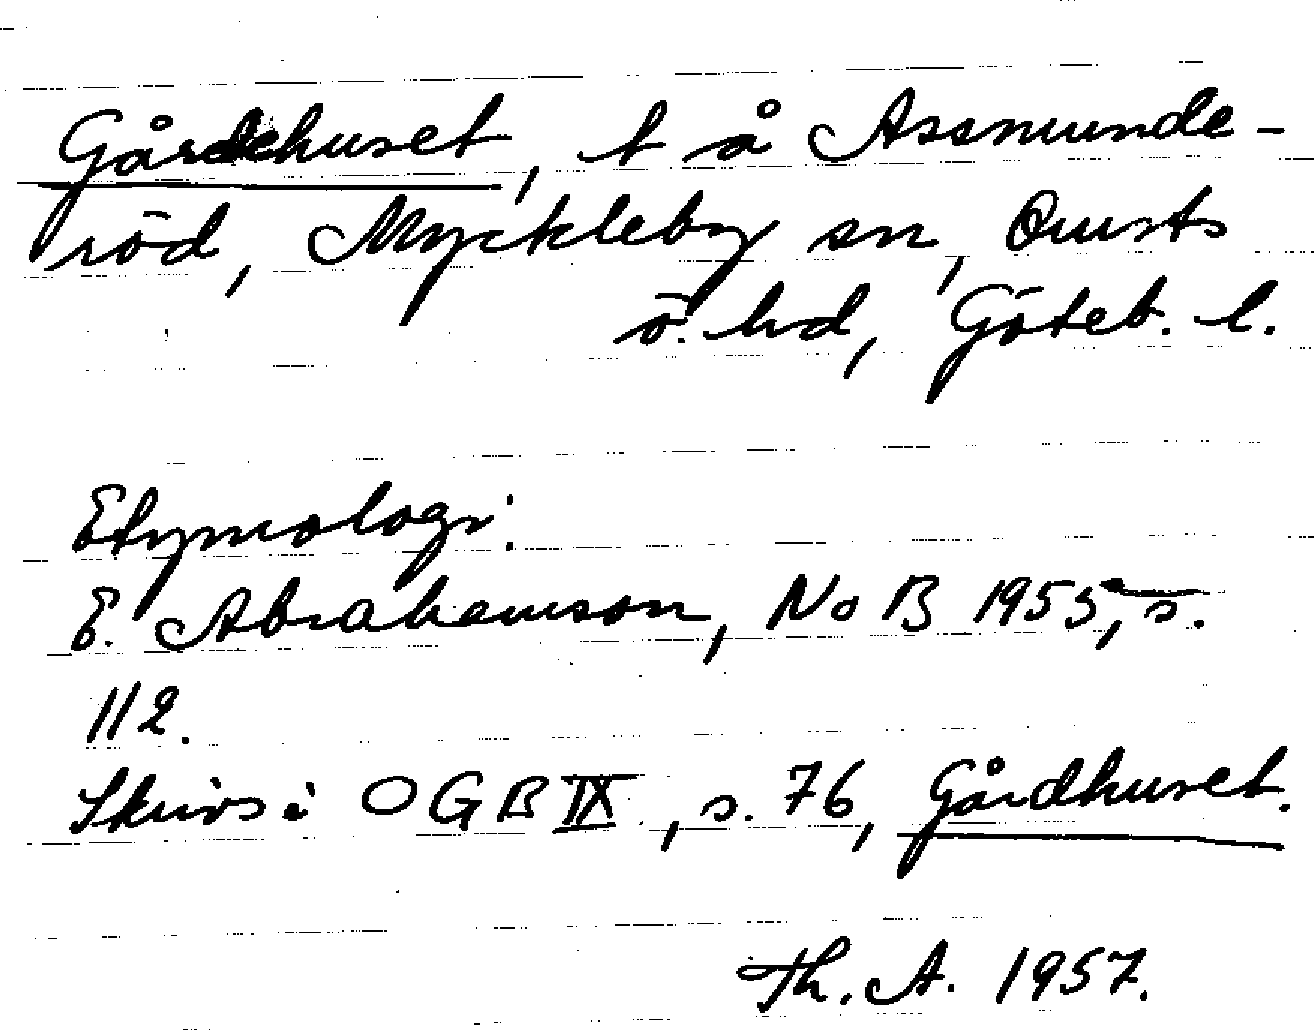 Gårdehuset, t å Assmunde-
röd, Myckleby sn, Orusts
ö. hd, Göteb. l.
Etymologi:
E. Abrahamson, NoB 1955, s.
112.
Skrivs i OGB IX, s. 76, Gårdhuset.
Th. A. 1957.